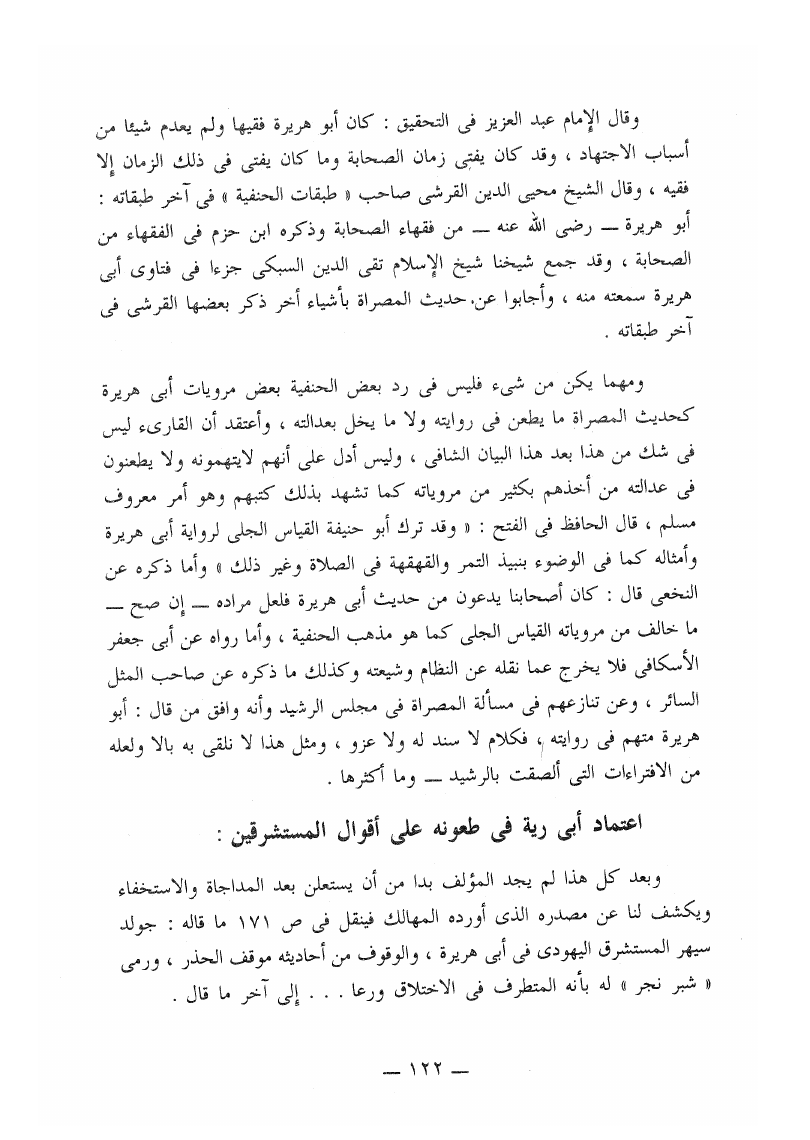 وقال الإمام عبد العزيز فى التحقيق : كان أبو هريرة فقيها ولم يعدم شيئا من
أسباب الاجتهاد ، وقد كان يفتى زمان الصحابة وما كان يفتى فى ذلك الزمان إلا
فقيه ، وقال الشيخ محيى الدين القرشى صاحب « طبقات الحنفية » فى آخر طبقاته :
أبو هريرة — رضى الله عنه — من فقهاء الصحابة وذكره ابن حزم فى الفقهاء من
الصحابة ، وقد جمع شيخنا شيخ الإسلام تقى الدين السبكى جزءا فى فتاوى أبى
هريرة سمعته منه ، وأجابوا عن حديث المصراة بأشياء أخر ذكر بعضها القرشى فى
آخر طبقاته .
ومهما يكن من شىء فليس فى رد بعض الحنفية بعض مرويات أبى هريرة
كحديث المصراة ما يطعن فى روايته ولا ما يخل بعدالته ، وأعتقد أن القارىء ليس
فى شك من هذا بعد هذا البيان الشافى ، وليس أدل على أنهم لايتهمونه ولا يطعنون
فى عدالته من أخذهم بكثير من مروياته كما تشهد بذلك كتبهم وهو أمر معروف
مسلم ، قال الحافظ فى الفتح : « وقد ترك أبو حنيفة القياس الجلى لرواية أبى هريرة
وأمثاله كما فى الوضوء بنبيذ التمر والقهقهة فى الصلاة وغير ذلك » وأما ذكره عن
النخعى قال : كان أصحابنا يدعون من حديث أبى هريرة فلعل مراده — إن صح —
ما خالف من مروياته القياس الجلى كما هو مذهب الحنفية ، وأما رواه عن أبى جعفر
الأسكافى فلا يخرج عما نقله عن النظام وشيعته وكذلك ما ذكره عن صاحب المثل
السائر ، وعن تنازعهم فى مسألة المصراة فى مجلس الرشيد وأنه وافق من قال : أبو
هريرة متهم فى روايته ، فكلام لا سند له ولا عزو ، ومثل هذا لا نلقى به بالا ولعله
من الافتراءات التى ألصقت بالرشيد — وما أكثرها .
اعتماد أبى رية فى طعونه على أقوال المستشرقين :
وبعد كل هذا لم يجد المؤلف بدا من أن يستعلن بعد المداجاة والاستخفاء
ويكشف لنا عن مصدره الذى أورده المهالك فينقل فى ص ١٧١ ما قاله : جولد
سيهر المستشرق اليهودى فى أبى هريرة ، والوقوف من أحاديثه موقف الحذر ، ورمى
« شبر نجر » له بأنه المتطرف فى الاختلاق ورعا . . . إلى آخر ما قال .
— ١٢٢ —